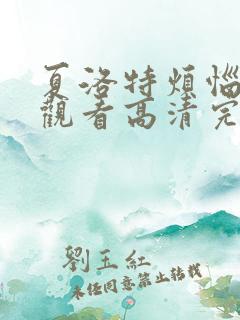 夏洛特煩惱
觀看高清完
劉玉紅
未经同意禁止转载